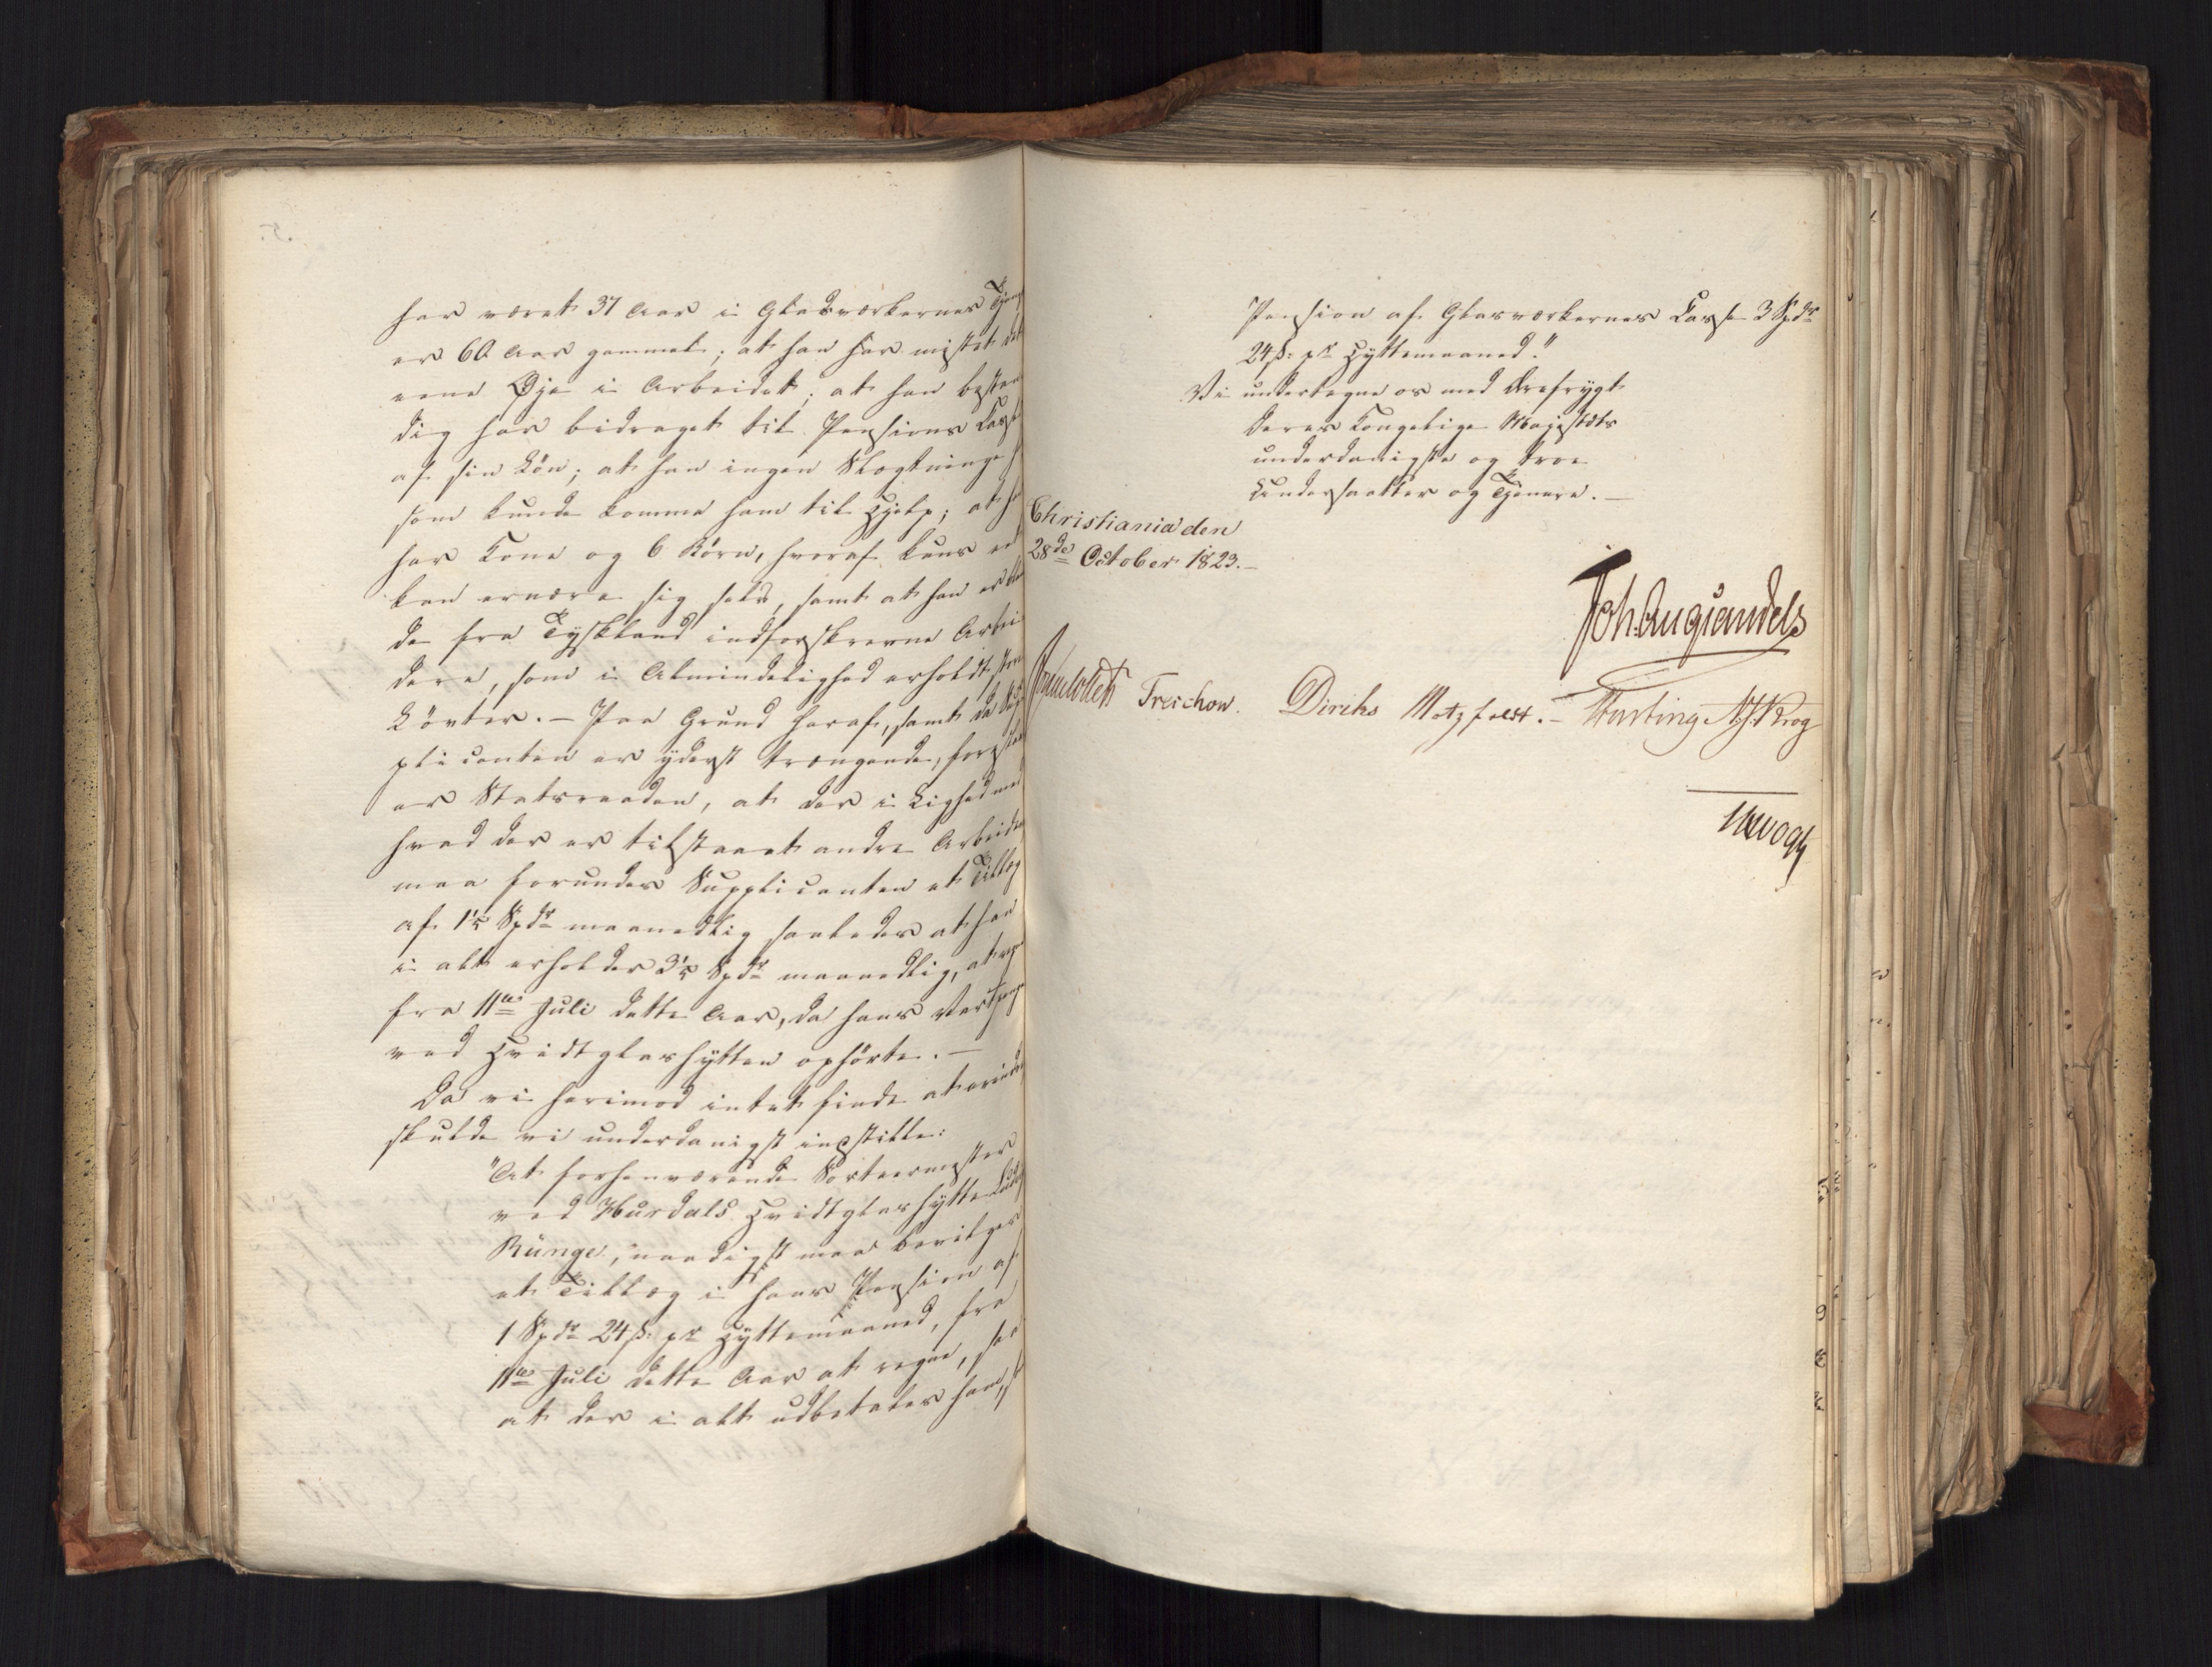 har været 37 Aar i Glasværkernes Tjeneste
er 60 Aar gammel; at han har mistet det
eene Øje i Arbeidet; at han bestan
dig har bidraget til Pensions Kassen
af sin Løn; at han ingen Slægtninge
som kunde komme ham til Hjelp; at han
har Kone og 6 Børn, hvoraf kuns en
kan ernære sig selv, samt at han er blandt
de fra Tydskland indforskrevne Arbei
dere, som i Almindelighed erholdt store
Løvter. – Paa Grund heraf, samt da Sup
plicanten er yderst trængende, forestaar
er Statsraaden, at der i Lighed med
hvad der er tilstaaet andre Arbeidere
maa forundes Supplicanten et Tillæg
af 1 1/5 Spdr maanedlig saaledes at han
i alt erholder 3 1/5 Spdr maanedlig, at regne
fra 11te Juli dette Aar, da hans Vartpenge
ved Hvidtglashytten ophörte. –
Da vi herimod intet finde at erindre
skulde vi underdanigst indstille:
"At forhenværende Sorteermester
ved Hurdals Hvidtglashytte Ludvig
Rünge, naadigst maa bevilges
et Tillæg i hans Pension af
1 Spdr 24 ß pr Hyttemaaned, fra
11te Juli dette Aar at regne, saa
at der i alt udbetales ham, i
Pension af Glasværkernes Casse 3 Spdr
24 ß: pr Hyttemaaned."
Vi undertegne os med Ærefrygt
Deres Kongelige Majestæts
underdanigste og troe
Undersaatter og Tjenere. –
Christiania den
28de October 1823. –
Joh. Aug. Sandels
Sommerhielm Treschow. Diriks Motzfeldt. – Fasting N J Krog
Vogt